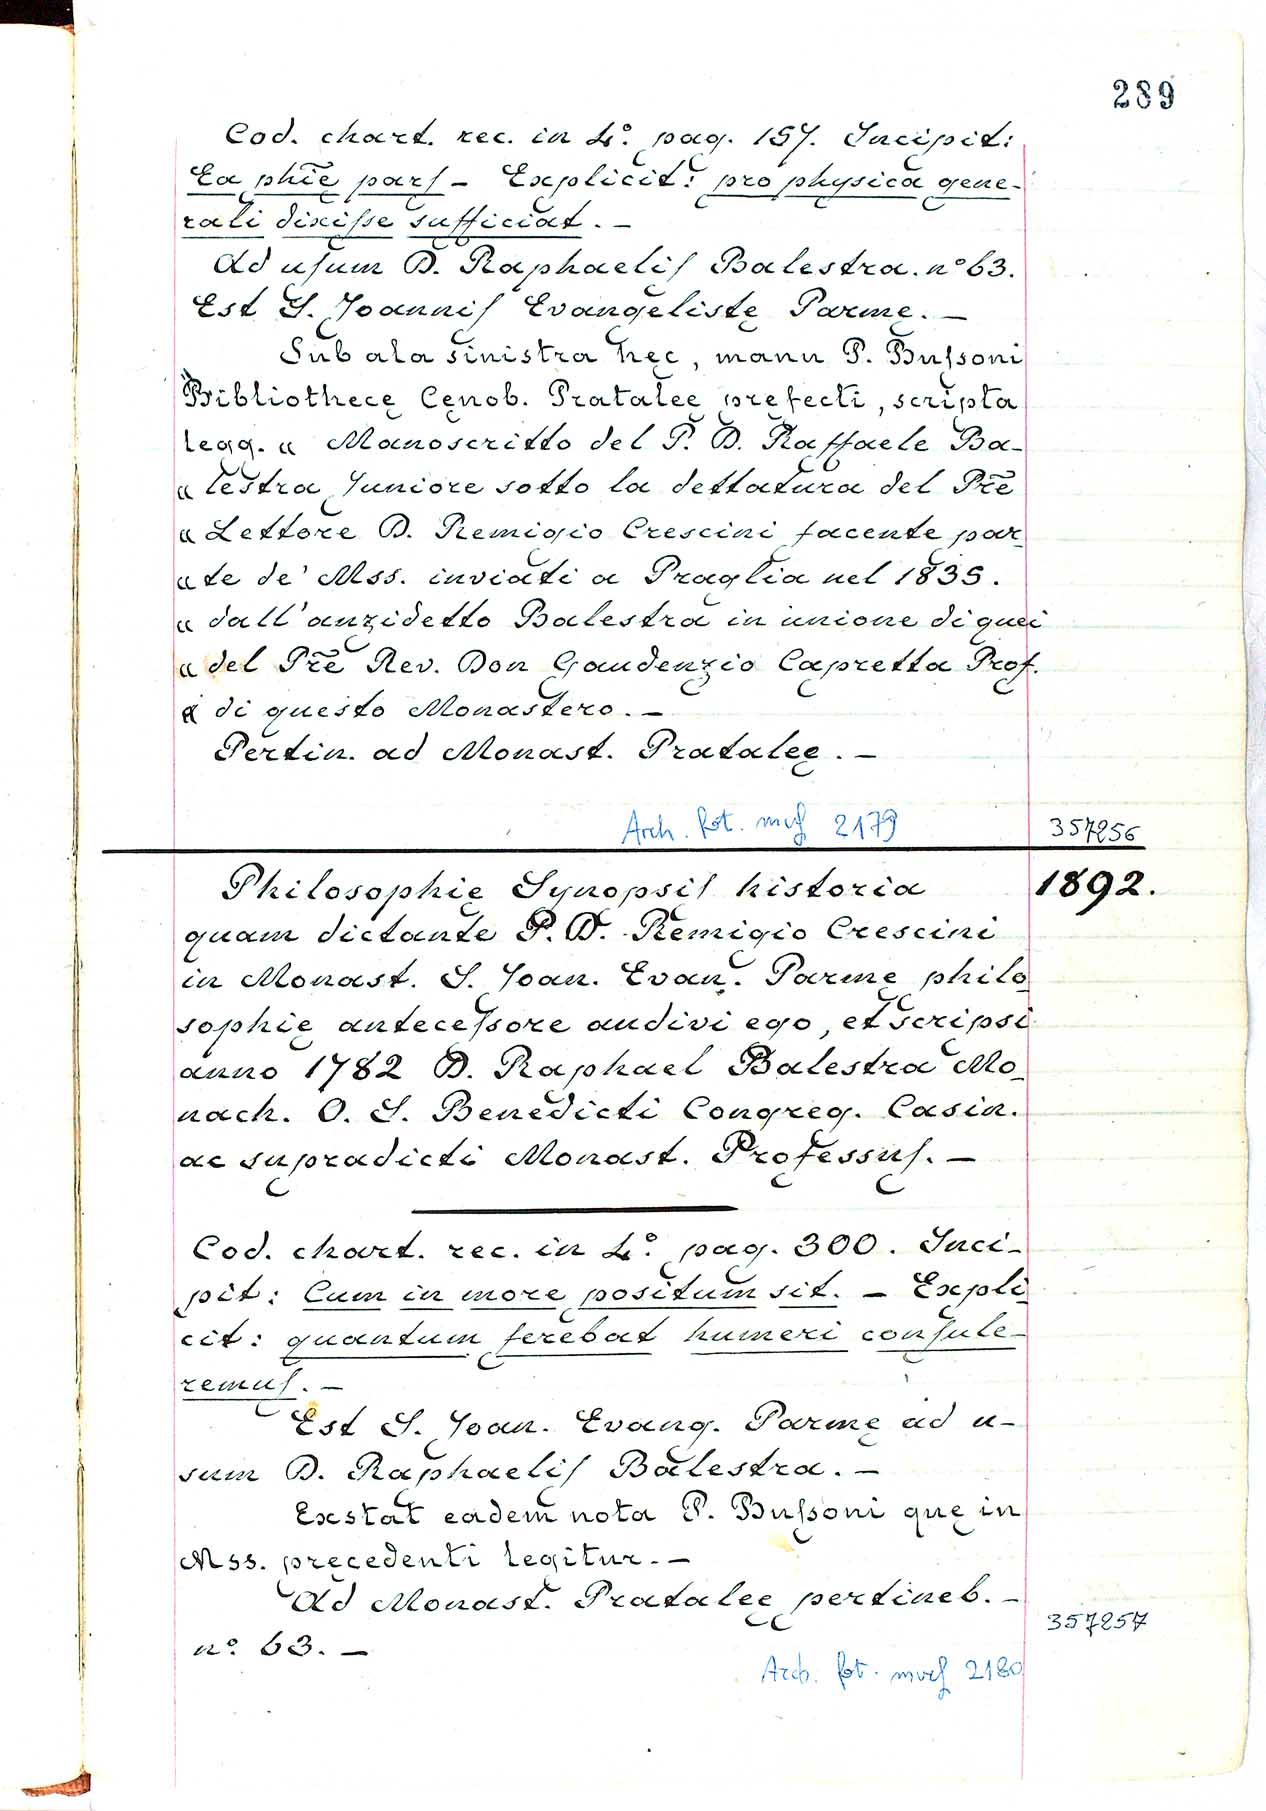 289
Cod. chart. rec. in 4.° pag. 157. Incipit:
Ea phiẽ parſ – Explicit: pro physica gene-
rali dixiſse sufficiat. –
Ad uſum D. Raphaeliſ Balestra. n° 63.
Est S. Joanniſ Evangelistę Parmę. –
Sub ala sinistra hęc, manu P. Buſsoni
Bibliothecę Cęnob. Prataleę pręfecti, scripta
legg. « Manoscritto del P. D. Raffaele Ba-
« lestra Juniore sotto la dettatura del Prẽ
« Lettore D. Remigio Crescini facente par-
« te de' Mss. inviati a Praglia nel 1835.
« dall'anzidetto Balestra in unione di quei
« del Prẽ Rev. Don Gaudenzio Capretta Prof.
« di questo Monastero. –
Pertin. ad Monast. Prataleę. –
Arch. fot. mcf 2179
357256
Philosophię Synopsiſ historia
1892.
quam dictante P. D. Remigio Crescini
in Monast. S. Joan. Evan. Parmę philo-
sophię anteceſsore audivi ego, et scripsi
anno 1782 D. Raphael Balestra Mo-
nach. O. S. Benedicti Congreg. Casin.
ac supradicti Monast. Professuſ. –
Cod. chart. rec. in 4.° pag. 300. Inci-
pit: Cum in more positum sit. – Expli-
cit: quantum ferebat humeri conſule-
remuſ. –
Est S. Joan. Evang. Parmę ad u-
sum D. Raphaeliſ Balestra. –
Exstat eadem nota P. Buſsoni quę in
Mss. pręcedenti legitur. –
Ad Monast. Prataleę pertineb. –
357257
n° 63. –
Arch. fot. mcf 2180